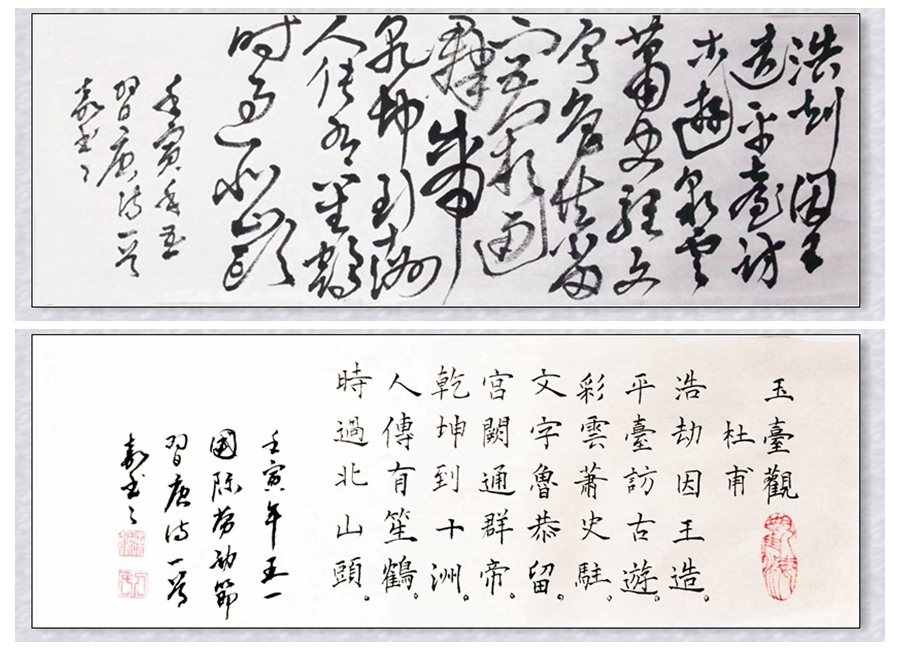 浩劫因王
造平臺訪
古遊彩雲
蕭史駐文
字魯恭留
宮闕通
群帝
乾坤到十洲
人傳有笙鶴
时過北山頭
壬寅年五
習唐诗一首
玉臺觀
杜甫
浩劫因王造。
平臺訪古遊。
彩雲蕭史駐。
文字魯恭留。
宮闕通群帝。
乾坤到十洲。
人傳有笙鶴。
時過北山頭。
壬寅年五一
國际劳动節
習唐诗一首